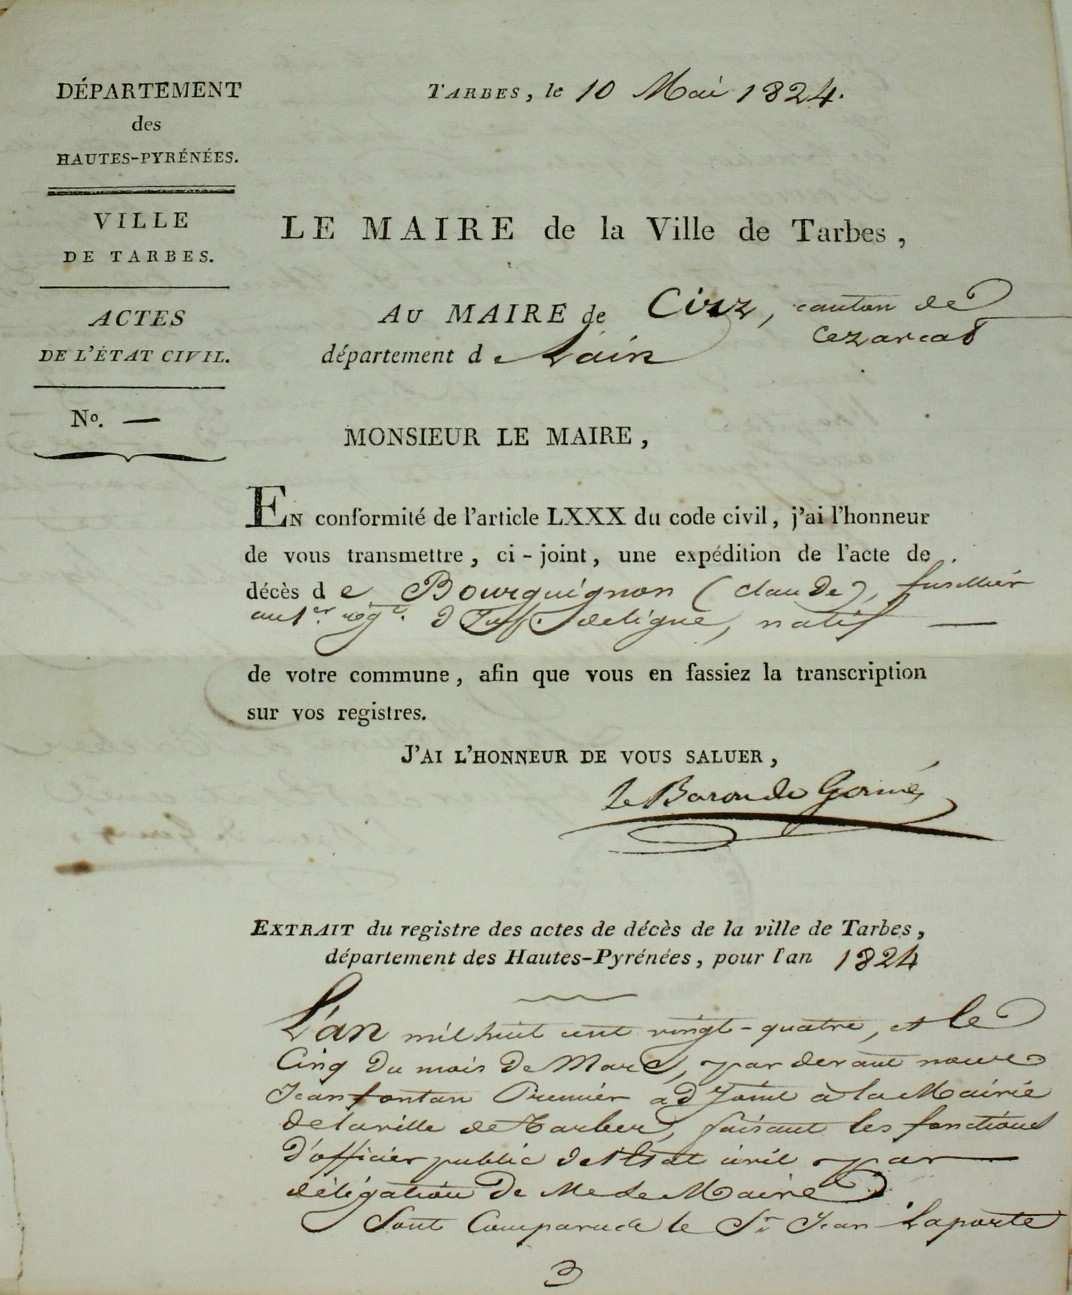 DÉPARTEMENT
des
HAUTES-PYRÉNÉES.
VILLE
DE TARBES.
ACTES
DE L'ÉTAT CIVIL.
No. —
TARBES, le 10 Mai 1824.
LE MAIRE de la Ville de Tarbes,
AU MAIRE de Cizz, canton de
Cezarcas
département de Lain
MONSIEUR LE MAIRE,
EN conformité de l'article LXXX du code civil, j'ai l'honneur
de vous transmettre, ci-joint, une expédition de l'acte de
décès de Bourguignon (Claude), fusillier
au 1er. regt. d'Inff. de ligne, natif —
de votre commune, afin que vous en fassiez la transcription
sur vos registres.
J'AI L'HONNEUR DE VOUS SALUER,
le Baron de
EXTRAIT du registre des actes de décès de la ville de Tarbes,
département des Hautes-Pyrénées, pour l'an 1824
L'an mil huit cent vingt-quatre, et le
Cinq du mois de Mars, par devant nous
Jean fontan Premier adjoint à la Mairie
de la ville de Tarbes, faisant les fonctions
d'officier public de l'Etat civil par —
délégation de Mr. le Maire
Sont Comparu le Sr. Jean Laporte
3